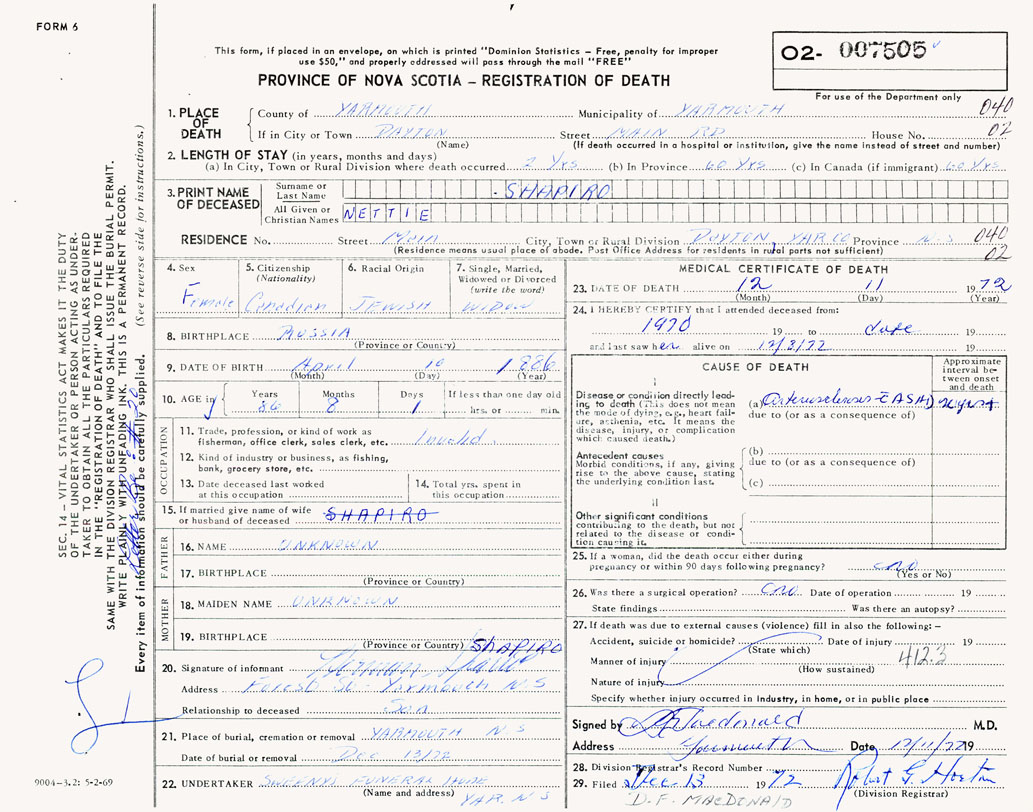 FORM 6
This form, if placed in an envelope, on which is printed "Dominion Statistics – Free, penalty for improper
use $50," and properly addressed will pass through the mail "FREE"
PROVINCE OF NOVA SCOTIA – REGISTRATION OF DEATH
02- 007505
For use of the Department only
1. PLACE OF DEATH
County of YARMOUTH Municipality of YARMOUTH 040
If in City or Town DAYTON Street MAIN RD House No. 02
(Name) (If death occurred in a hospital or institution, give the name instead of street and number)
2. LENGTH OF STAY (in years, months and days)
(a) In City, Town or Rural Division where death occurred 2 Yrs (b) In Province 60 Yrs (c) In Canada (if immigrant) 60 Yrs
3. PRINT NAME OF DECEASED
Surname or Last Name SHAPIRO
All Given or Christian Names NETTIE
RESIDENCE No. Street Main City, Town or Rural Division DAYTON, YAR. CO Province N-S 040
(Residence means usual place of abode. Post Office Address for residents in rural parts not sufficient) 02
4. Sex
Female
5. Citizenship
(Nationality)
Canadian
6. Racial Origin
JEWISH
7. Single, Married, Widowed or Divorced
(write the word)
WIDOW
8. BIRTHPLACE RUSSIA
(Province or Country)
9. DATE OF BIRTH April 10 1886
(Month) (Day) (Year)
10. AGE in
Years 86
Months 8
Days 1
If less than one day old
hrs. or min.
OCCUPATION
11. Trade, profession, or kind of work as
fisherman, office clerk, sales clerk, etc. Invalid
12. Kind of industry or business, as fishing,
bank, grocery store, etc.
13. Date deceased last worked
at this occupation
14. Total yrs. spent in
this occupation
15. If married give name of wife
or husband of deceased SHAPIRO
FATHER
16. NAME UNKNOWN
17. BIRTHPLACE
(Province or Country)
MOTHER
18. MAIDEN NAME UNKNOWN
19. BIRTHPLACE
(Province or Country) SHAPIRO
20. Signature of informant
Address Forest St. Yarmouth N S
Relationship to deceased Son
21. Place of burial, cremation or removal YARMOUTH N S
Date of burial or removal Dec 13/72
22. UNDERTAKER SWEENYS FUNERAL HOME
(Name and address) YAR. N S
MEDICAL CERTIFICATE OF DEATH
23. DATE OF DEATH 12 11 1972
(Month) (Day) (Year)
24. I HEREBY CERTIFY that I attended deceased from:
1970 19 to date 19
and last saw her alive on 12/8/72 19
CAUSE OF DEATH
Approximate interval between onset and death
I
Disease or condition directly leading to death (This does not mean the mode of dying, e.g., heart failure, asthenia, etc. It means the disease, injury, or complication which caused death.)
(a) Arteriosclerosis ASHD
due to (or as a consequence of)
Antecedent causes
Morbid conditions, if any, giving rise to the above cause, stating the underlying condition last.
(b)
due to (or as a consequence of)
(c)
II
Other significant conditions
contributing to the death, but not related to the disease or condition causing it.
25. If a woman, did the death occur either during
pregnancy or within 90 days following pregnancy? no
(Yes or No)
26. Was there a surgical operation? no Date of operation 19
State findings Was there an autopsy?
27. If death was due to external causes (violence) fill in also the following:–
Accident, suicide or homicide? Date of injury 19
(State which) 412.3
Manner of injury
(How sustained)
Nature of injury
Specify whether injury occurred in industry, in home, or in public place
Signed by Macdonald M.D.
Address Yarmouth Date 12/11/72 19
28. Division Registrar's Record Number
29. Filed Dec 13 1972 Robert G. Horton
D.F. MACDONALD (Division Registrar)
SEC. 14 – VITAL STATISTICS ACT MAKES IT THE DUTY
OF THE UNDERTAKER OR PERSON ACTING AS UNDERTAKER TO OBTAIN ALL THE PARTICULARS REQUIRED
IN THE "REGISTRATION OF DEATH" AND FILE THE
SAME WITH THE DIVISION REGISTRAR WHO SHALL ISSUE THE BURIAL PERMIT.
WRITE PLAINLY WITH UNFADING INK. THIS IS A PERMANENT RECORD.
Every item of information should be carefully supplied. (See reverse side for instructions.)
9004-3.2: 5-2-69